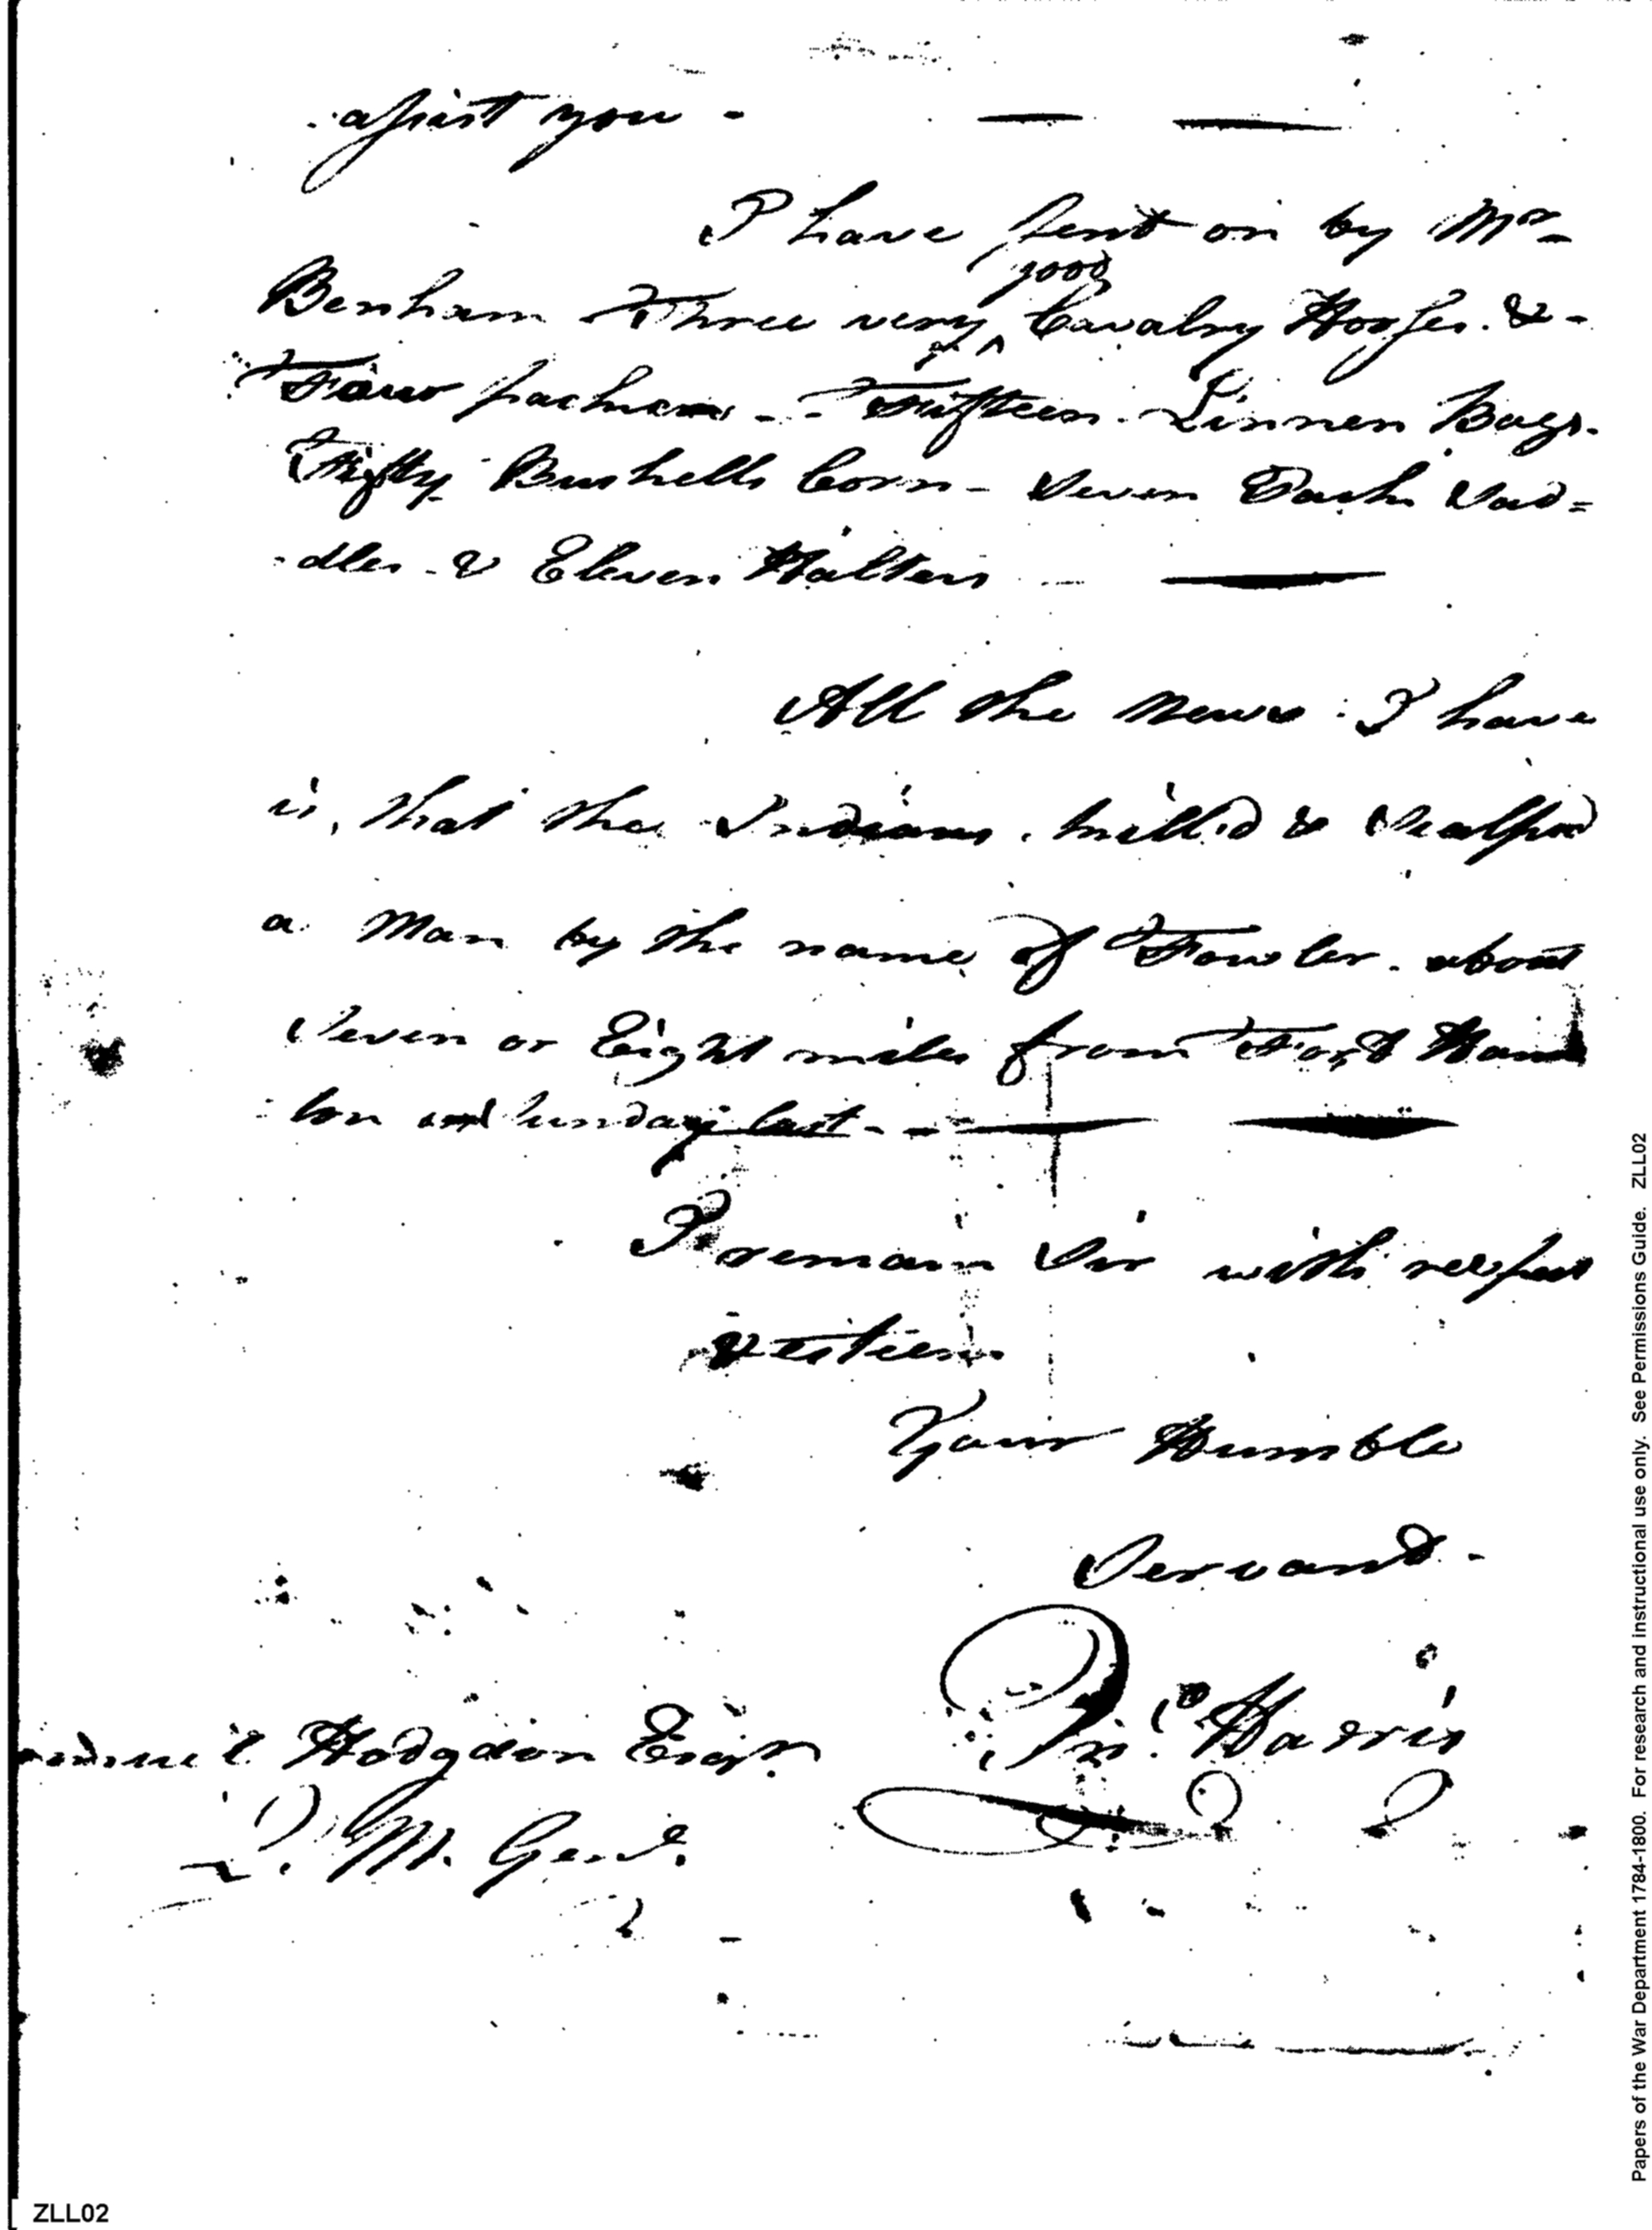 assist you -
I have sent on by Mr
Benham Three very good Cavalry Horses. &-
Four pack - Fifteen Linnen Bags.
Fifty Bushells Corn - Seven Pack Sad=
-dles - & Eleven Halters
All the News I have
is, that the Indians killed & Scalped
a Man by the name of Fowler. about
Seven or Eight miles from Fort Hamil
ton sunday last - -
I remain Sir with respect
& esteem
Your Humble
Servant -
Jno. Harris
Samuel Hodgdon Esqr.
Q. M. Genl.
Papers of the War Department 1784-1800. For research and instructional use only. See Permissions Guide. ZLL02
ZLL02